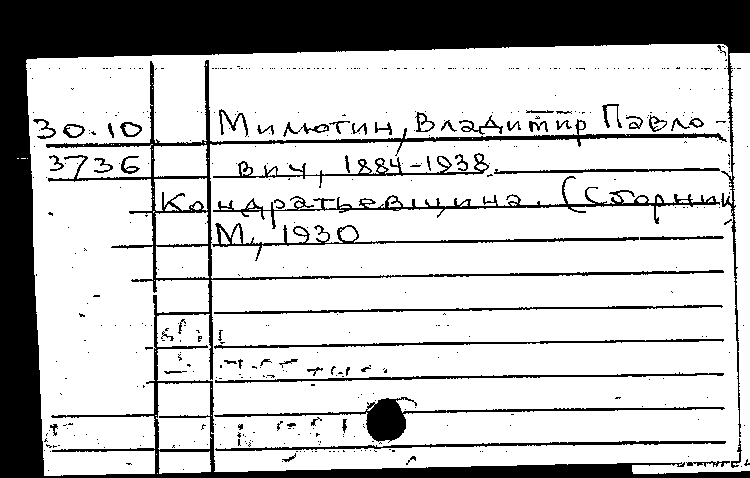 30.10 Милютин, Владимир Павло-
3736 вич, 1884-1938.
Кондратьевщина. (Сборник
М., 1930